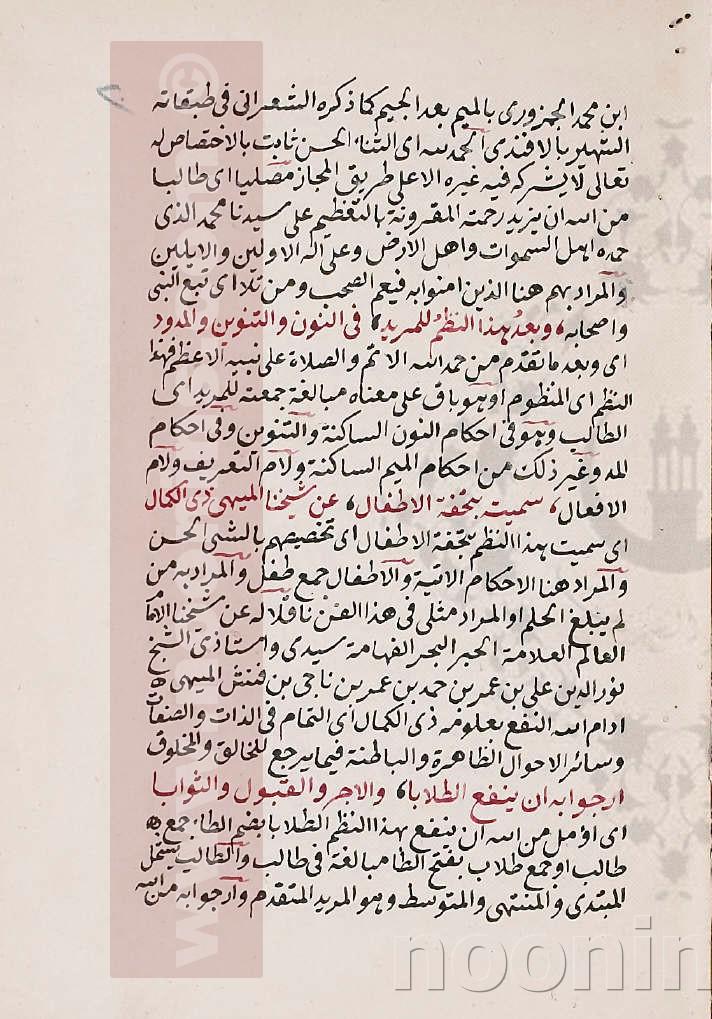 ابن محمد الجمزورى بالميم بعد الجيم كما ذكره الشعرانى فى طبقاته
الشهير بالافندى الحمد لله اى الثناء الحسن ثابت بالاختصاص له
تعالى لا يشركه فيه غيره الا على طريق المجاز مصليا اى طالبا
من الله ان يزيد رحمته المقرونة بالتعظيم على سيدنا محمد الذى
حمده اهل السموات واهل الارض وعلى اله الاولين والايلين
والمراد بهم هنا الذين امنوا به فيعم الصحب ومن تلا اى تبع النبى
واصحابه، وبعد هذا النظم للمريد، فى النون والتنوين والمدود
اى وبعد ما تقدم من حمد الله الاتم والصلاة على نبيه الاعظم فهذا
النظم اى المنظوم او هو باق على معناه مبالغة جمعته للمريد اى
الطالب وهو فى احكام النون الساكنة والتنوين وفى احكام
المد وغير ذلك من احكام الميم الساكنة ولام التعريف ولام
الافعال، سميته بتحفة الاطفال، عن شيخنا الميهى ذى الكمال
اى سميت هذا النظم بتحفة الاطفال اى تخصيصهم بالشئ الحسن
والمراد هنا الاحكام الاتية والاطفال جمع طفل والمراد به من
لم يبلغ الحلم او المراد مثلى فى هذا الفن ناقلا له عن شيخنا الامام
العالم العلامة الحبر البحر الفهامة سيدى واستاذى الشيخ
نور الدين على بن عمر بن حمد بن عمر بن ناجى بن فنش الميهى
ادام الله النفع بعلومه ذى الكمال اى التمام فى الذات والصفات
وسائر الاحوال الظاهرة والباطنة فيما يرجع للخالق والمخلوق
ارجو به ان ينفع الطلابا، والاجر والقبول والثوابا
اى اؤمل من الله ان ينفع بهذا النظم الطلابا بضم الطاء جمع
طالب او جمع طلاب بفتح الطا مبالغة فى طالب والطالب يشمل
المبتدى والمنتهى والمتوسط وهو المريد المتقدم وارجو به من الله
noonin